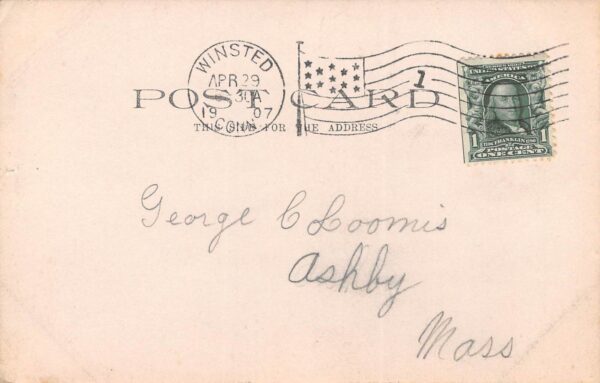 WINSTED
APR 29
30A
19 07
CONN
1
POST CARD
THIS SIDE FOR THE ADDRESS
UNITED STATES OF
AMERICA
1 1
POSTAGE
ONE CENT
George C Loomis
Ashby
Mass